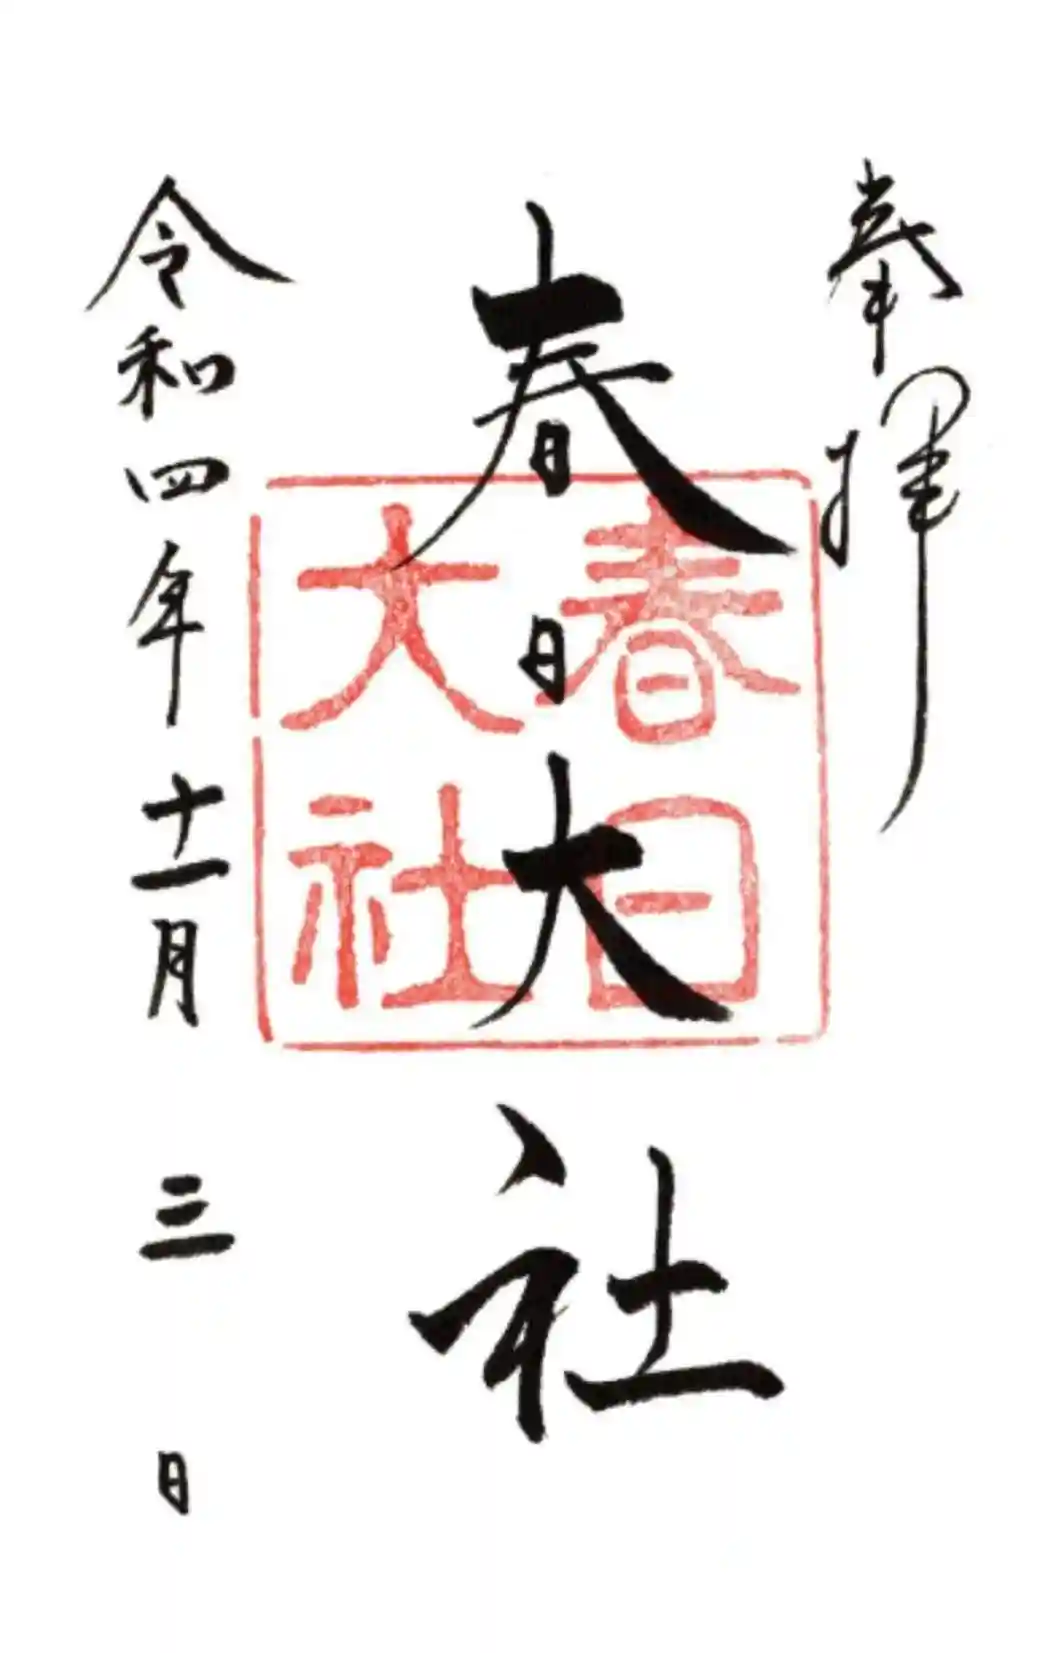 奉拝
春日大社
春日
大社
令和四年十一月三日